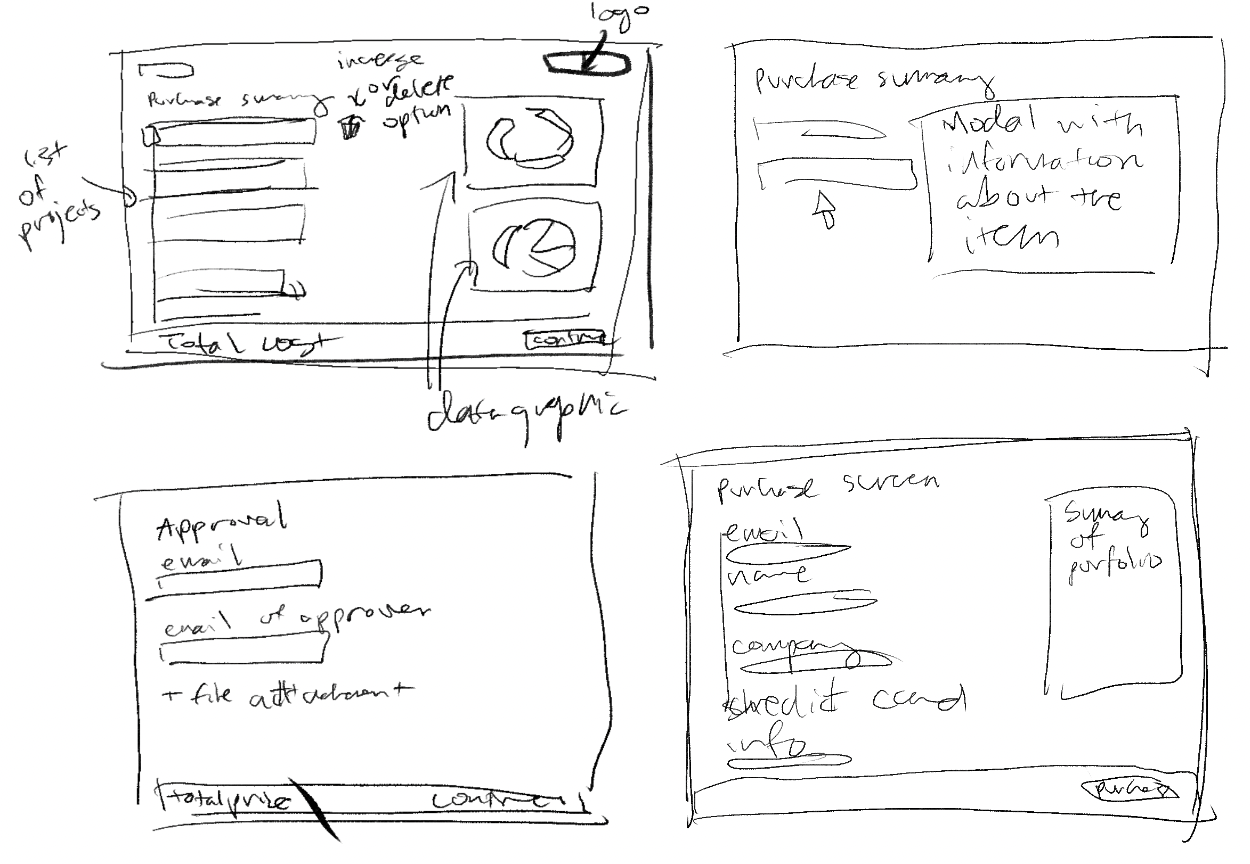 logo
increase
or
x delete
option
Purchase summary
list
of
projects
Total cost
continue
data graphic
Purchase summary
Modal with
information
about the
item
Approval
email
email of approver
+ file attachment
total price
continue
Purchase screen
email
name
company
credit card
info
Sumary
of
porfolio
purchase